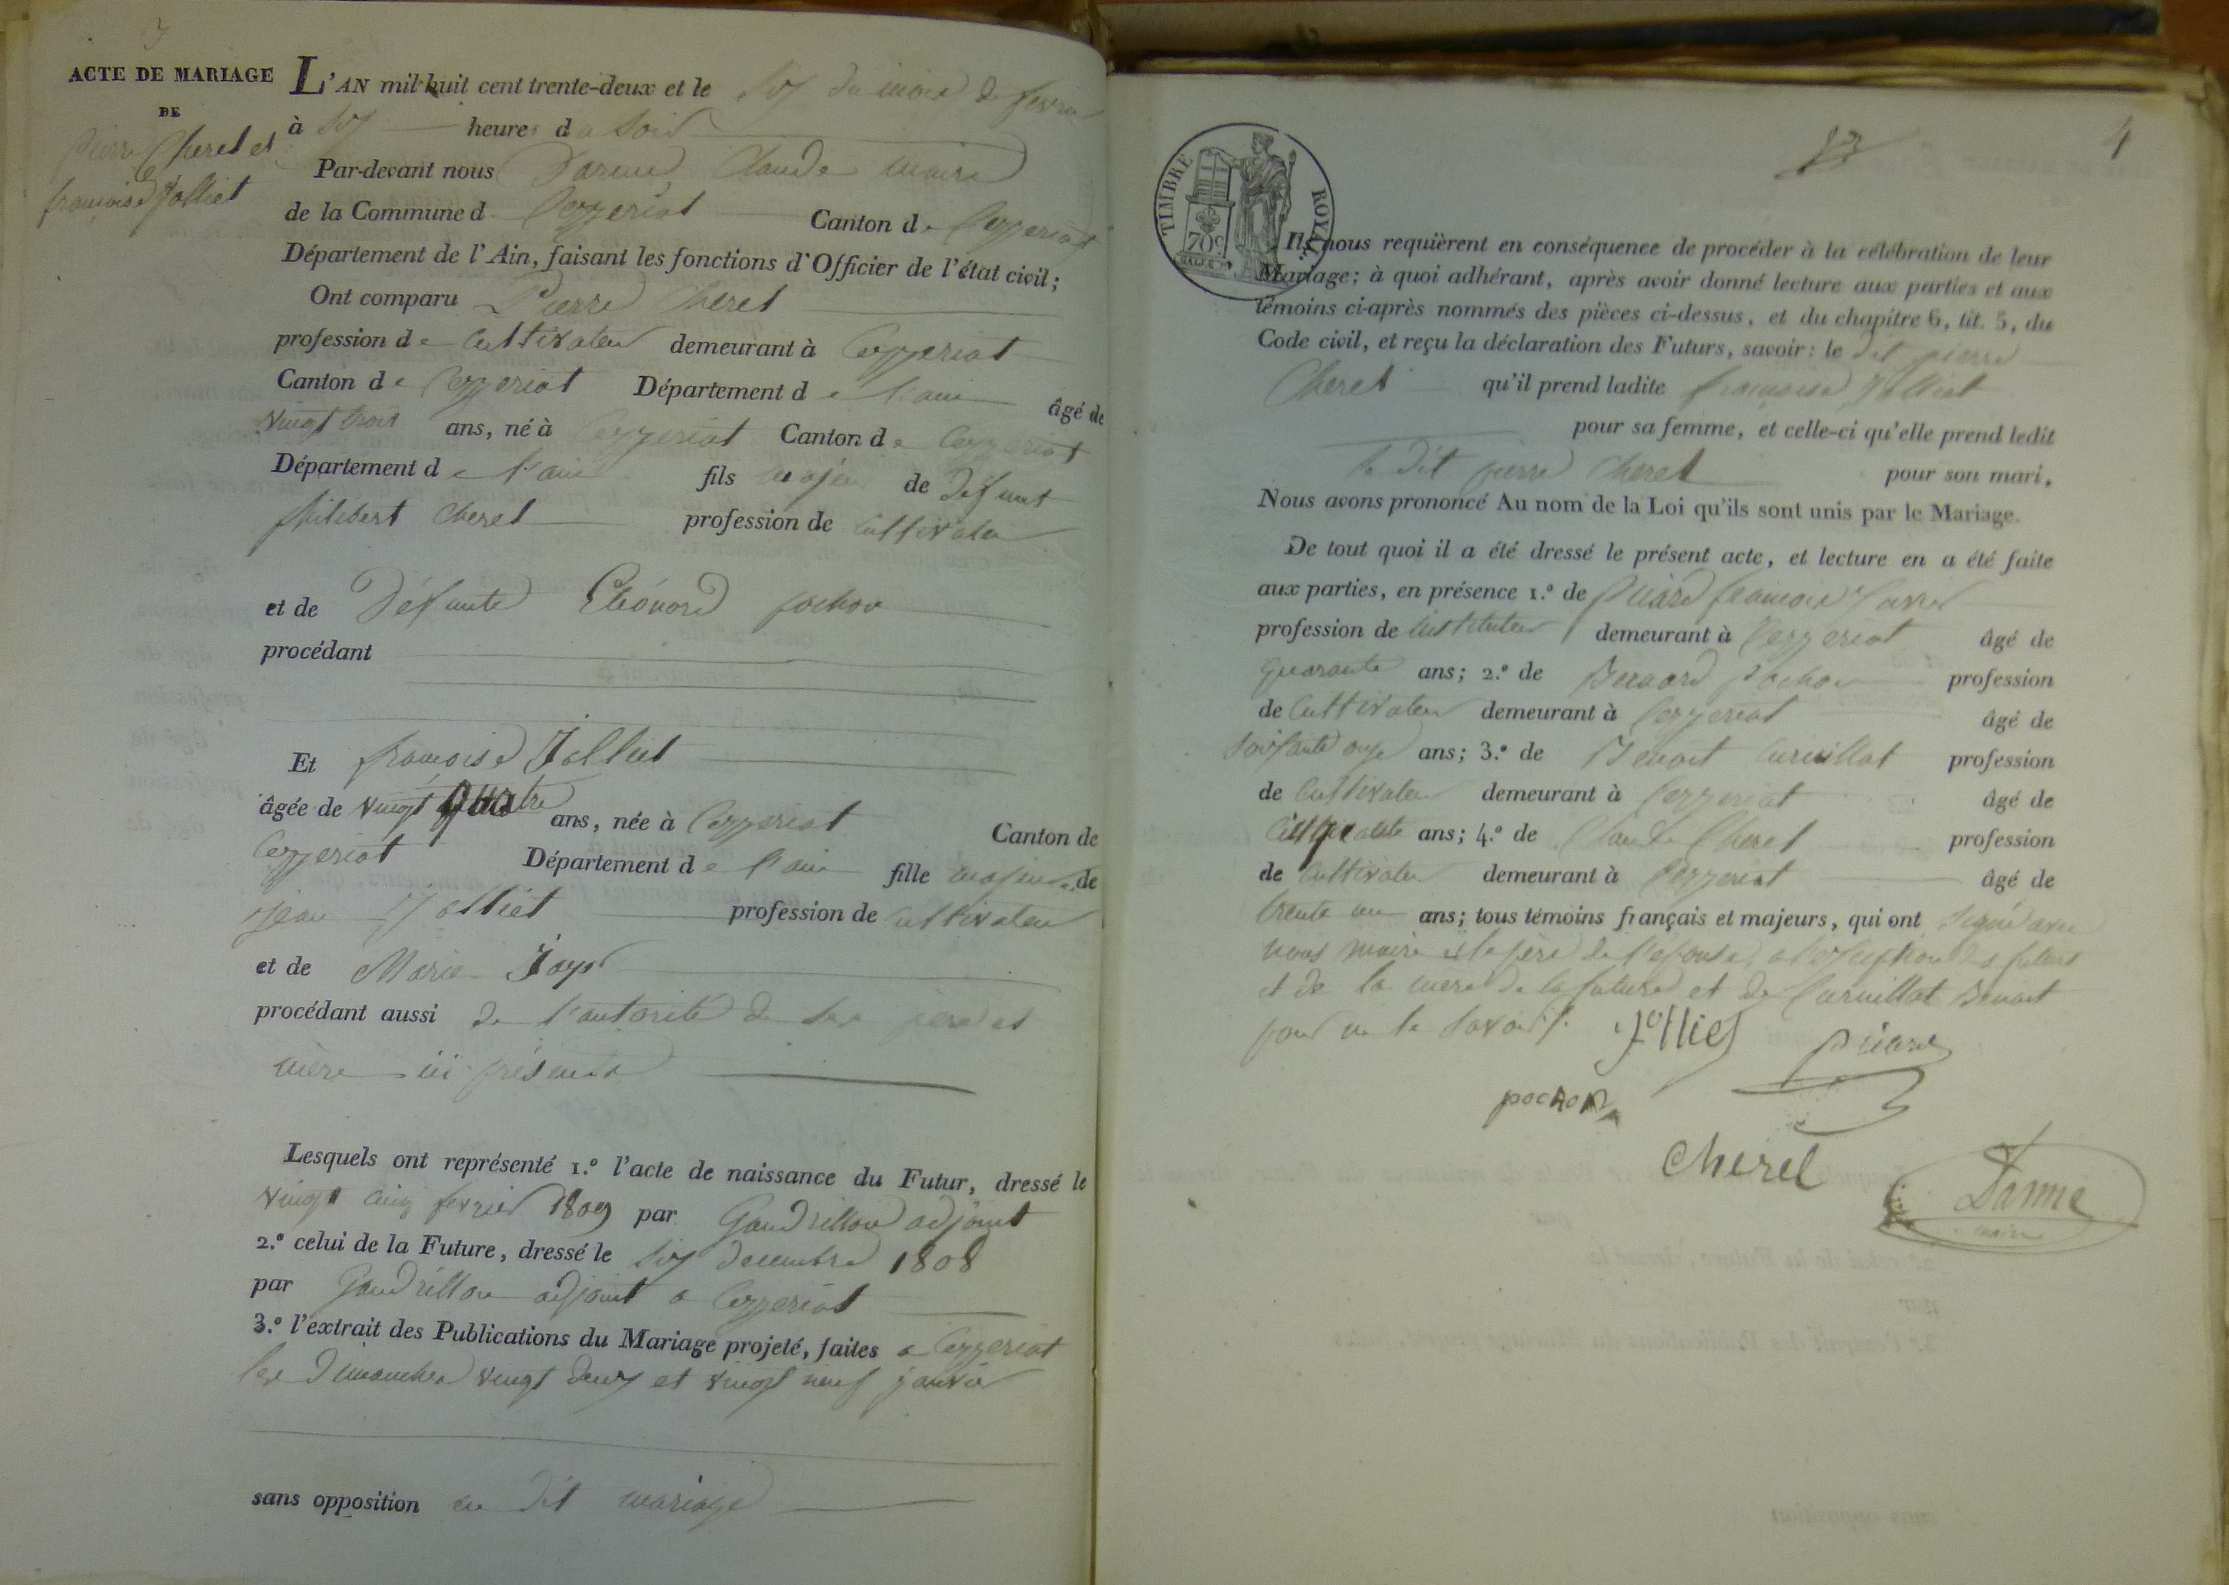 ACTE DE MARIAGE
DE
pierre Cherel et
françoise Jolliet
L'AN mil huit cent trente-deux et le six du mois de fevrier
à six heures du soir
Par-devant nous Darme Claude maire
de la Commune de Ceyzeriat Canton de Ceyzeriat
Département de l'Ain, faisant les fonctions d'Officier de l'état civil;
Ont comparu Pierre Cherel
profession de Cultivateur demeurant à Ceyzeriat
Canton de Ceyzeriat Département de l'ain âgé de
vingt trois ans, né à Ceyzeriat Canton de Ceyzeriat
Département de l'ain fils majeur de défunt
philibert Cherel profession de Cultivateur
et de Défunte Eléonore pochon
procédant
Et françoise Jolliet
âgée de vingt quatre ans, née à Ceyzeriat Canton de
Ceyzeriat Département de l'ain fille majeure de
jean Jolliet profession de Cultivateur
et de Marie
procédant aussi de l'autorité de ses père et
mère ici présents
Lesquels ont représenté 1.º l'acte de naissance du Futur, dressé le
vingt cinq fevrier 1809 par Gaudrillon adjoint
2.º celui de la Future, dressé le six decembre 1808
par Gaudrillon adjoint a Ceyzeriat
3.º l'extrait des Publications du Mariage projeté, faites a Ceyzeriat
les Dimanches vingt deux et vingt neuf janvier
sans opposition au dit mariage
4
TIMBRE ROYAL
70 c
Ils nous requièrent en conséquence de procéder à la célébration de leur
Mariage; à quoi adhérant, après avoir donné lecture aux parties et aux
témoins ci-après nommés des pièces ci-dessus, et du chapitre 6, tit. 5, du
Code civil, et reçu la déclaration des Futurs, savoir: le dit pierre
Cherel qu'il prend ladite françoise Jolliet
pour sa femme, et celle-ci qu'elle prend ledit
le dit pierre Cherel pour son mari,
Nous avons prononcé Au nom de la Loi qu'ils sont unis par le Mariage.
De tout quoi il a été dressé le présent acte, et lecture en a été faite
aux parties, en présence 1.º de françois
profession de instituteur demeurant à Ceyzeriat âgé de
quarante ans; 2.º de Bernard pochon profession
de Cultivateur demeurant à Ceyzeriat âgé de
soixante onze ans; 3.º de Benoit Curuillat profession
de Cultivateur demeurant à Ceyzeriat âgé de
Cinquante ans; 4.º de Claude Cherel profession
de Cultivateur demeurant à Ceyzeriat âgé de
trente un ans; tous témoins français et majeurs, qui ont signé avec
nous maire et le père de l'épouse, a l'exception des futurs
et de la mère de la future et de Curuillat Benoit
pour ne le savoir.
jollies
pochon
Cherel
Darme
maire